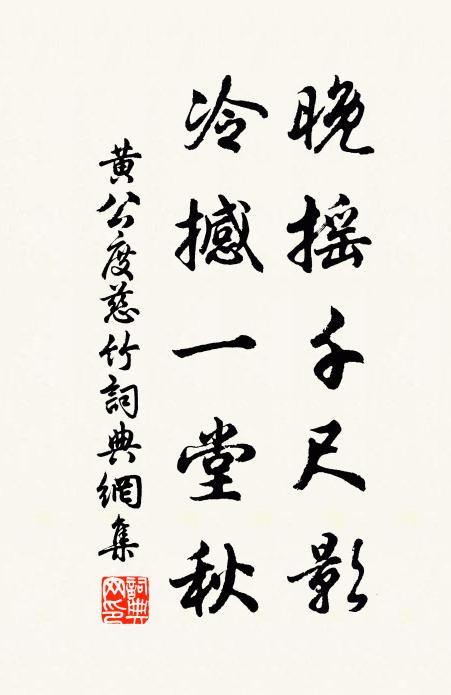 晚摇千尺影
冷撼一堂秋
黄公度慈竹詞典網集
詞典網印